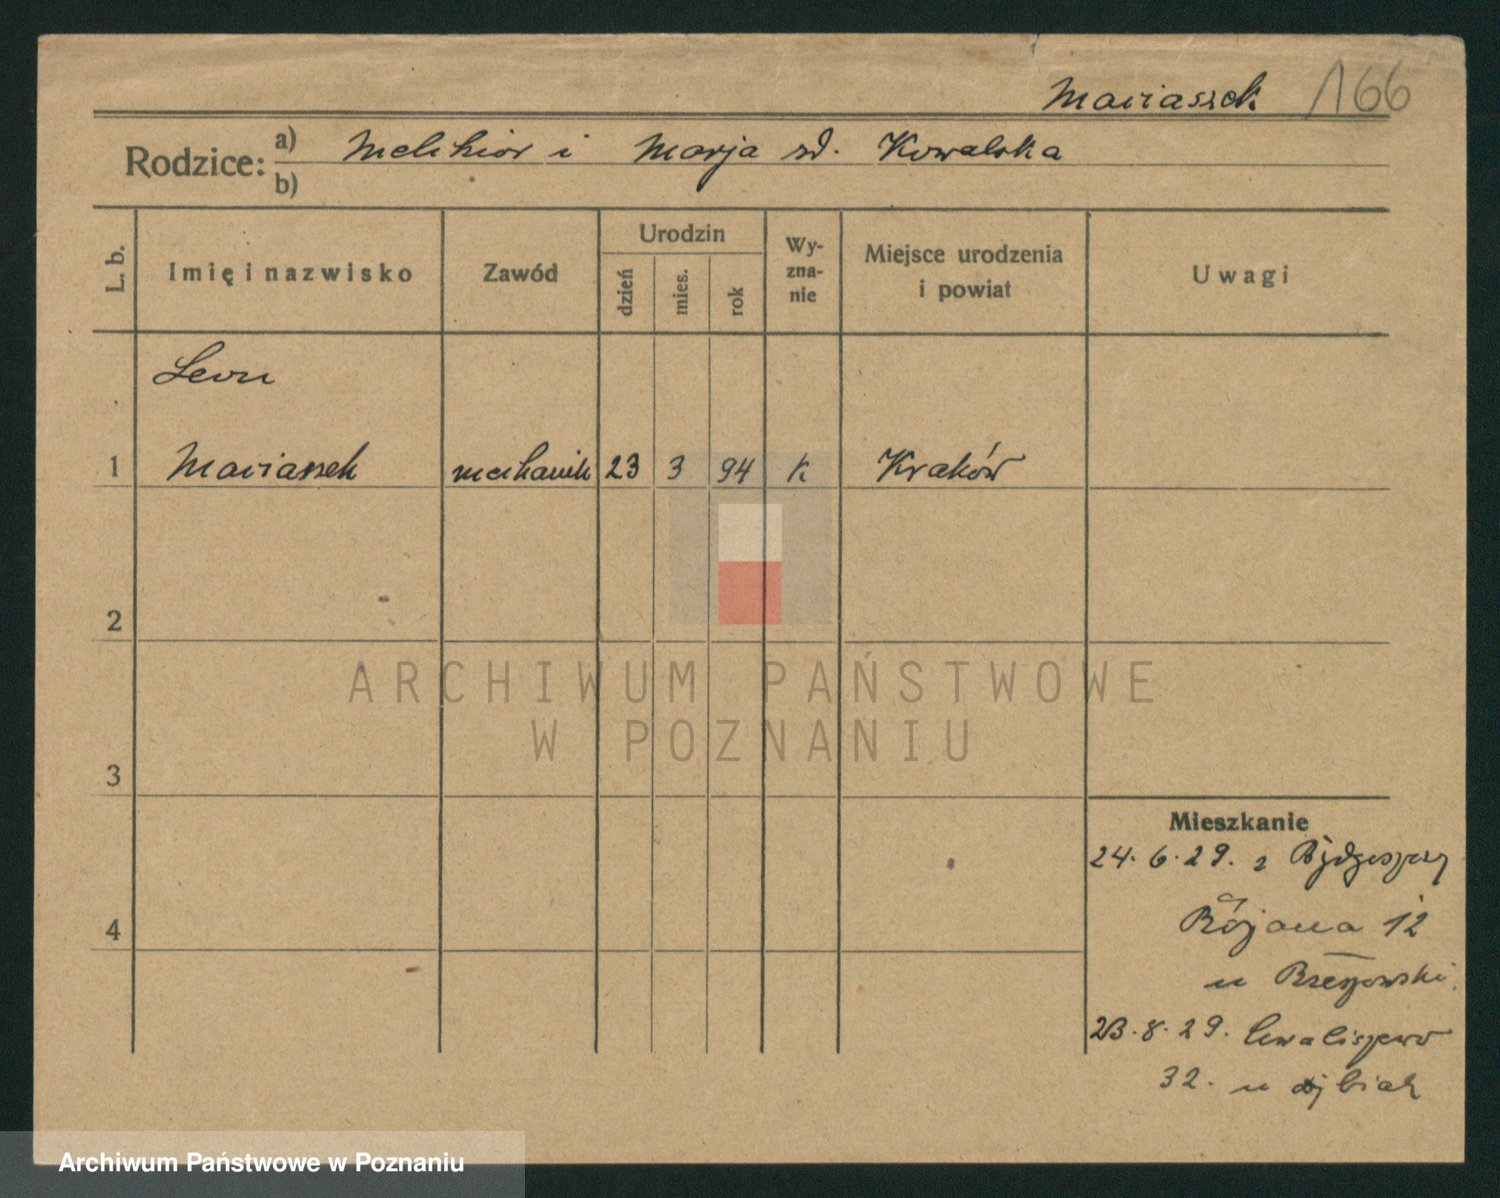 Maciaszek 166
Rodzice: a) Melchior i Marja zd. Kowalska
b)
L. b.
Imię i nazwisko
Zawód
Urodzin
dzień
mies.
rok
Wy-
zna-
nie
Miejsce urodzenia
i powiat
Uwagi
Leon
1 Maciaszek mechanik 23 3 94 k Kraków
2
3
4
Mieszkanie
24.6.29. z Bydgoszczy
12
u
23.8.29. Chwaliszewo
32. u
ARCHIWUM PAŃSTWOWE
W POZNANIU
Archiwum Państwowe w Poznaniu